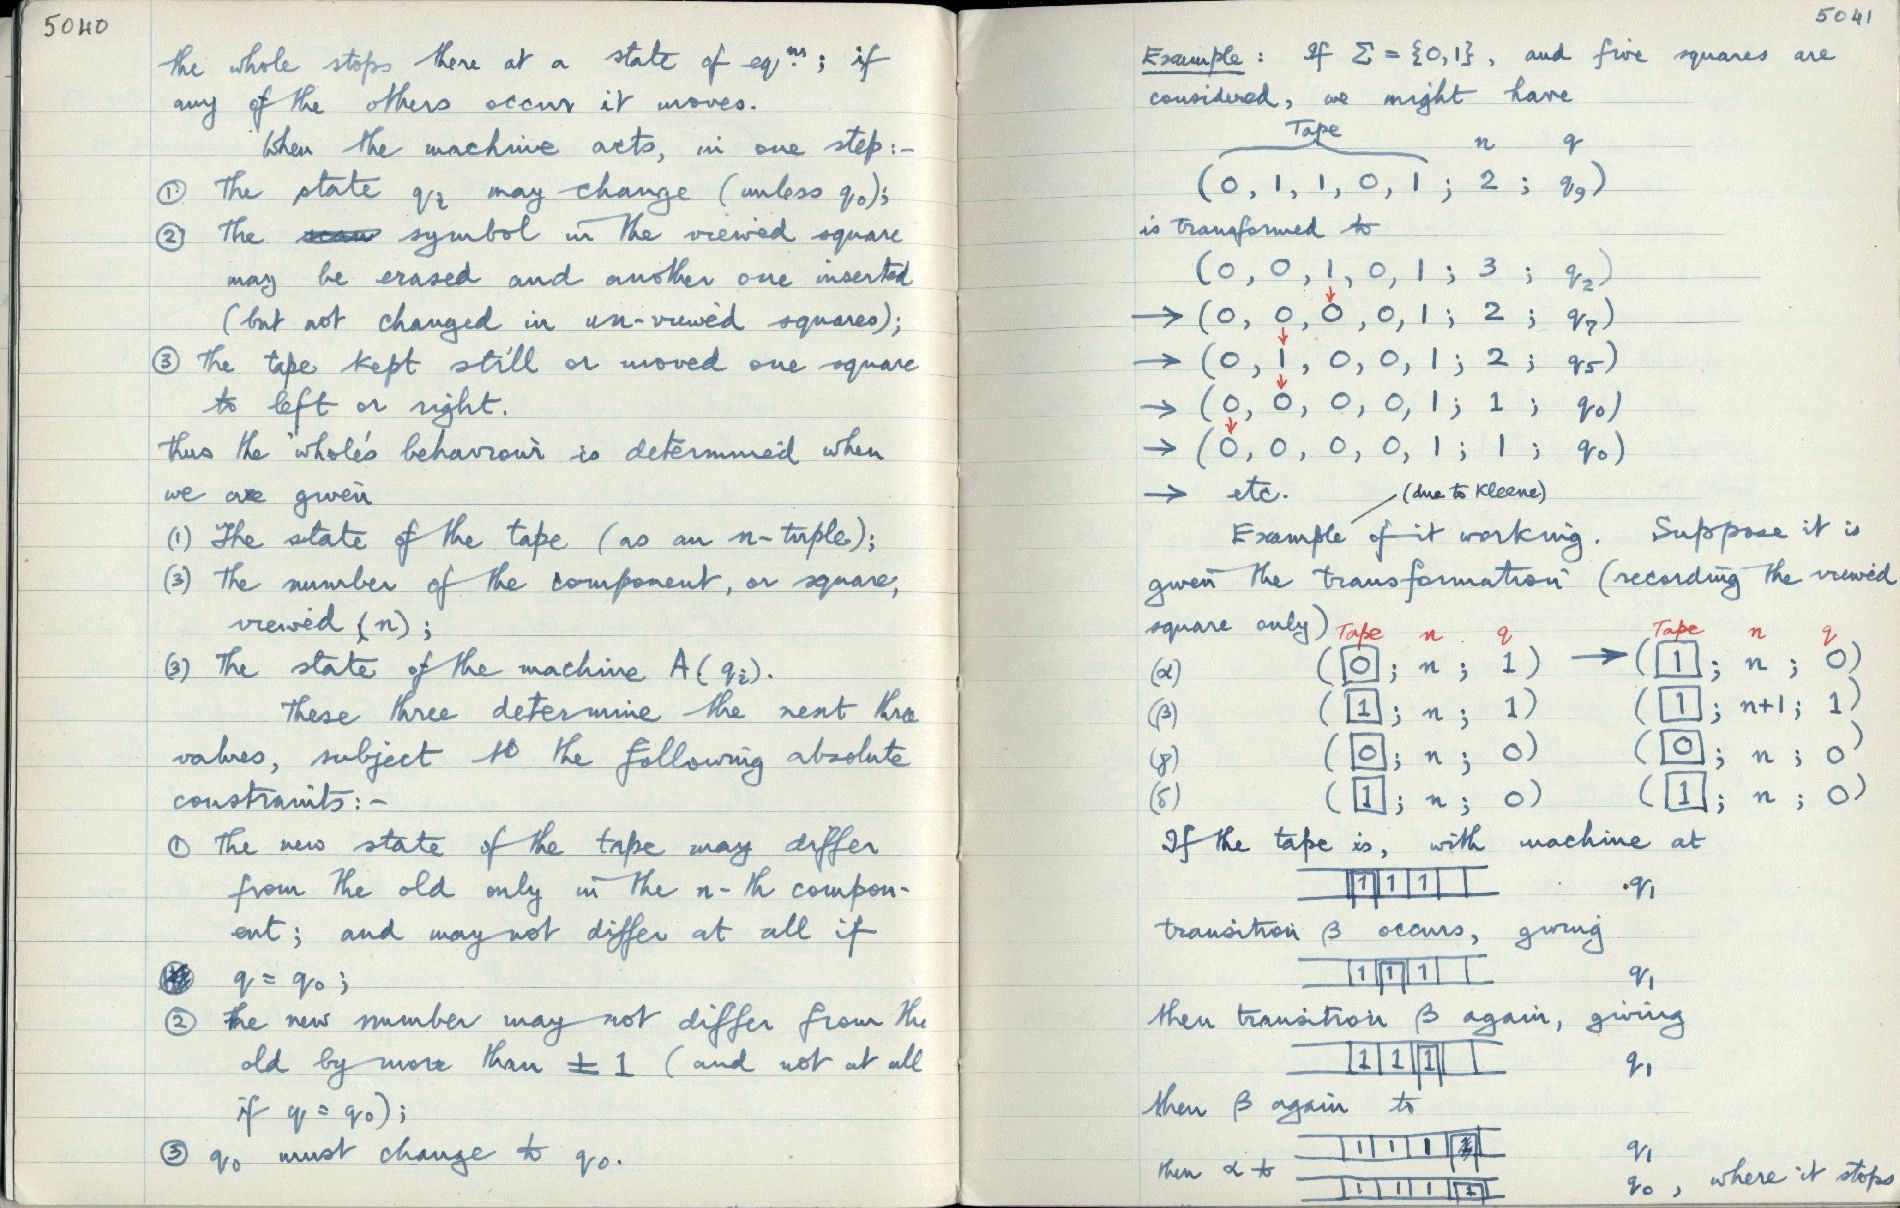 5040
the whole stops there at a state of eqm.; if
any of the others occur it moves.
When the machine acts, in one step:-
① The state qi may change (unless q0);
② The symbol in the viewed square
may be erased and another one inserted
(but not changed in un-viewed squares);
③ The tape kept still or moved one square
to left or right.
Thus the whole's behaviour is determined when
we are given
(1) The state of the tape (as an n-tuple);
(3) The number of the component, or square,
viewed (n);
(3) The state of the machine A (qi).
These three determine the next three
values, subject to the following absolute
constraints:-
① The new state of the tape may differ
from the old only in the n-th compon-
ent; and may not differ at all if
q = q0;
② The new number may not differ from the
old by more than ± 1 (and not at all
if q = q0);
③ q0 must change to q0.
5041
Example: If Σ = {0,1}, and five squares are
considered, we might have
Tape n q
(0, 1, 1, 0, 1; 2; q9)
is transformed to
(0, 0, 1, 0, 1; 3; q2)
→ (0, 0, 0, 0, 1; 2; q7)
→ (0, 1, 0, 0, 1; 2; q5)
→ (0, 0, 0, 0, 1; 1; q0)
→ (0, 0, 0, 0, 1; 1; q0)
→ etc. (due to Kleene)
Example of it working. Suppose it is
given the transformation (recording the viewed
square only) Tape n q Tape n q
(α) (0; n; 1) → (1; n; 0)
(β) (1; n; 1) (1; n+1; 1)
(γ) (0; n; 0) (0; n; 0)
(δ) (1; n; 0) (1; n; 0)
If the tape is, with machine at
1 1 1 q1
transition β occurs, giving
1 1 1 q1
then transition β again, giving
1 1 1 q1
then β again to
1 1 1 q1
then α to 1 1 1 1 q0, where it stops